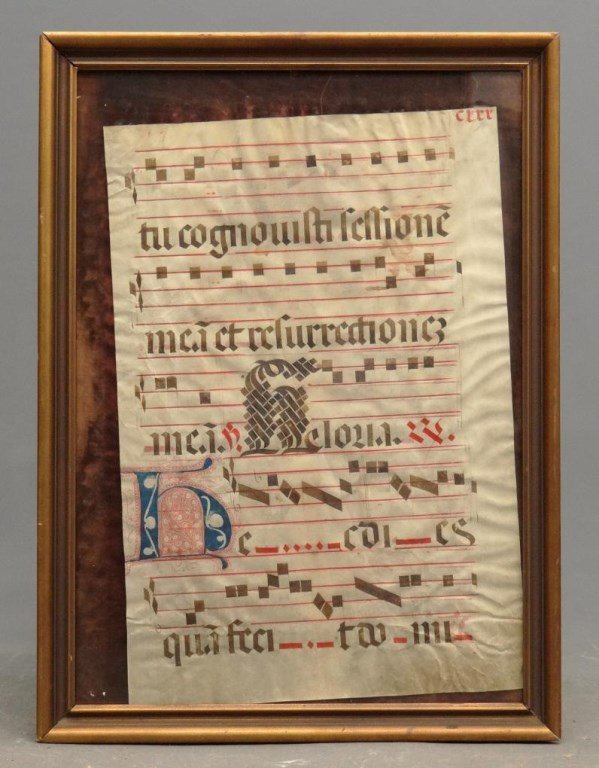 cxxx
tu cognouisti sessionē
meā et resurrectionez
meā. ℟. Gloria. ℣.
Hec dies
quā feci t do mi